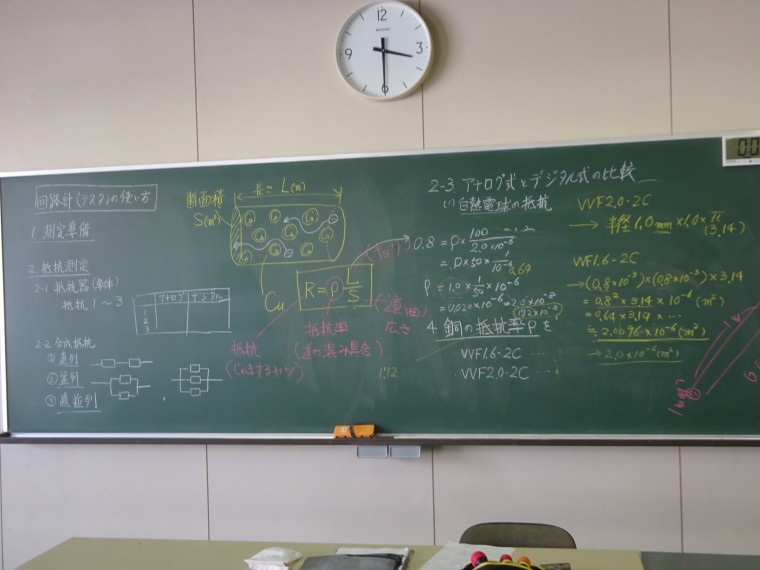 12
3
9
回路計(テスタ)の使い方
1 測定準備
2 抵抗測定
2-1 抵抗器(単体)
・抵抗1～3
アナログ デジタル
1
2
3
2-2 合成抵抗
① 直列
② 並列
③ 直並列
断面積
S(m²)
長さ L(m)
Cu
R=ρ L/S
抵抗
抵抗率
(道の混み具合)
(道の巾)
広さ
1:12
2-3 アナログ式とデジタル式の比較
(1) 白熱電球の抵抗
0.8 = ρ × 100/2.0×10⁻⁶
= ρ×50×1/10⁻⁶
ρ = 1.0 × 1/50 × 10⁻⁶
0.64
4. 銅の抵抗率ρを
VVF1.6-2C
・VVF2.0-2C
VVF2.0-2C
→ 半径1.0mm×1.0×π
(3.14)
VVF1.6-2C
→(0.8×10⁻³)×(0.8×10⁻³)×3.14
= 0.8²×3.14×10⁻⁶(m²)
= 0.64×3.14×…
≒ 2.0096×10⁻⁶(m²)
→ 2.0×10⁻⁶(m²)